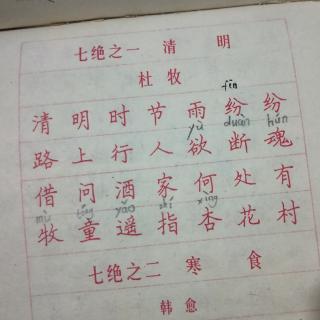 七绝之一 清 明
杜牧
fēn
清明时节雨纷纷
yù duàn hún
路上行人欲断魂
借问酒家何处有
mù tóng yáo zhǐ xìng
牧童遥指杏花村
七绝之二 寒 食
韩愈